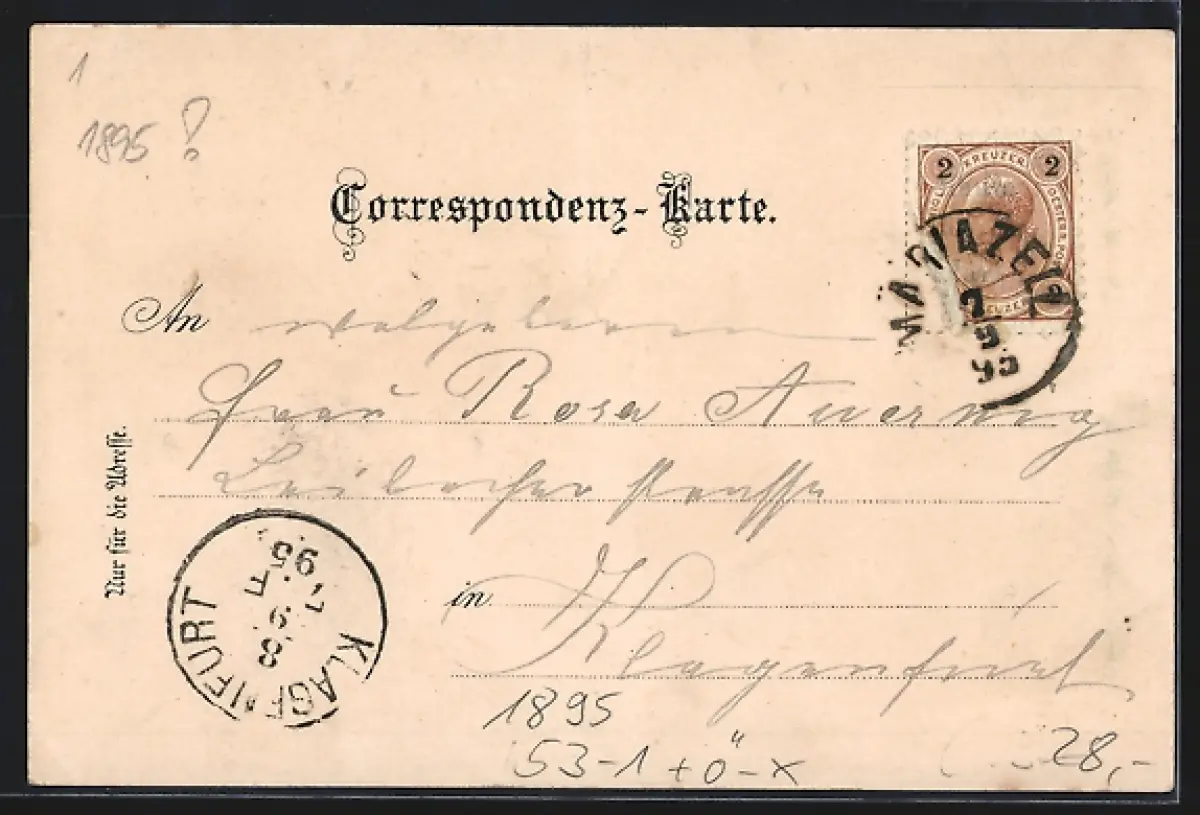 1
1895 !
Correspondenz-Karte.
2 KREUZER 2
MARIAZELL
7
9
95
An
Frau Rosa Auernig
Nur für die Adresse.
in Klagenfurt
KLAGENFURT
8 9
95
1895
53-1+Ö-X
28,-